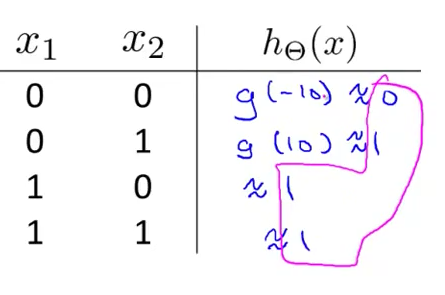 x₁ x₂ h_Θ(x)
0 0 g(-10) ≈ 0
0 1 g(10) ≈ 1
1 0 ≈ 1
1 1 ≈ 1